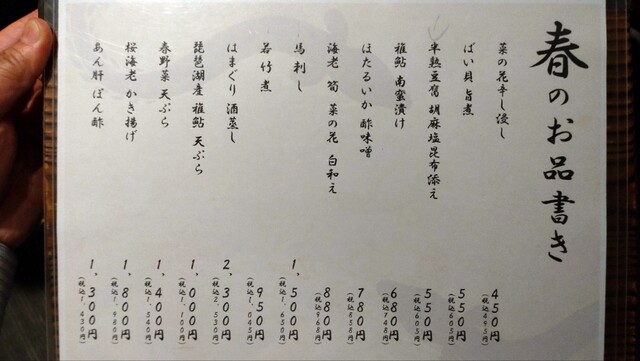 春のお品書き
菜の花辛し浸し 450円(税込495円)
ばい貝 旨煮 550円(税込605円)
半熟豆腐 胡麻塩昆布添え 550円(税込605円)
稚鮎 南蛮漬け 680円(税込748円)
ほたるいか 酢味噌 780円(税込858円)
海老 筍 菜の花 白和え 880円(税込968円)
馬刺し 1,500円(税込1,650円)
若竹煮 950円(税込1,045円)
はまぐり 酒蒸し 2,300円(税込2,530円)
琵琶湖産 稚鮎 天ぷら 1,000円(税込1,100円)
春野菜 天ぷら 1,400円(税込1,540円)
桜海老 かき揚げ 1,800円(税込1,980円)
あん肝 ぽん酢 1,300円(税込1,430円)